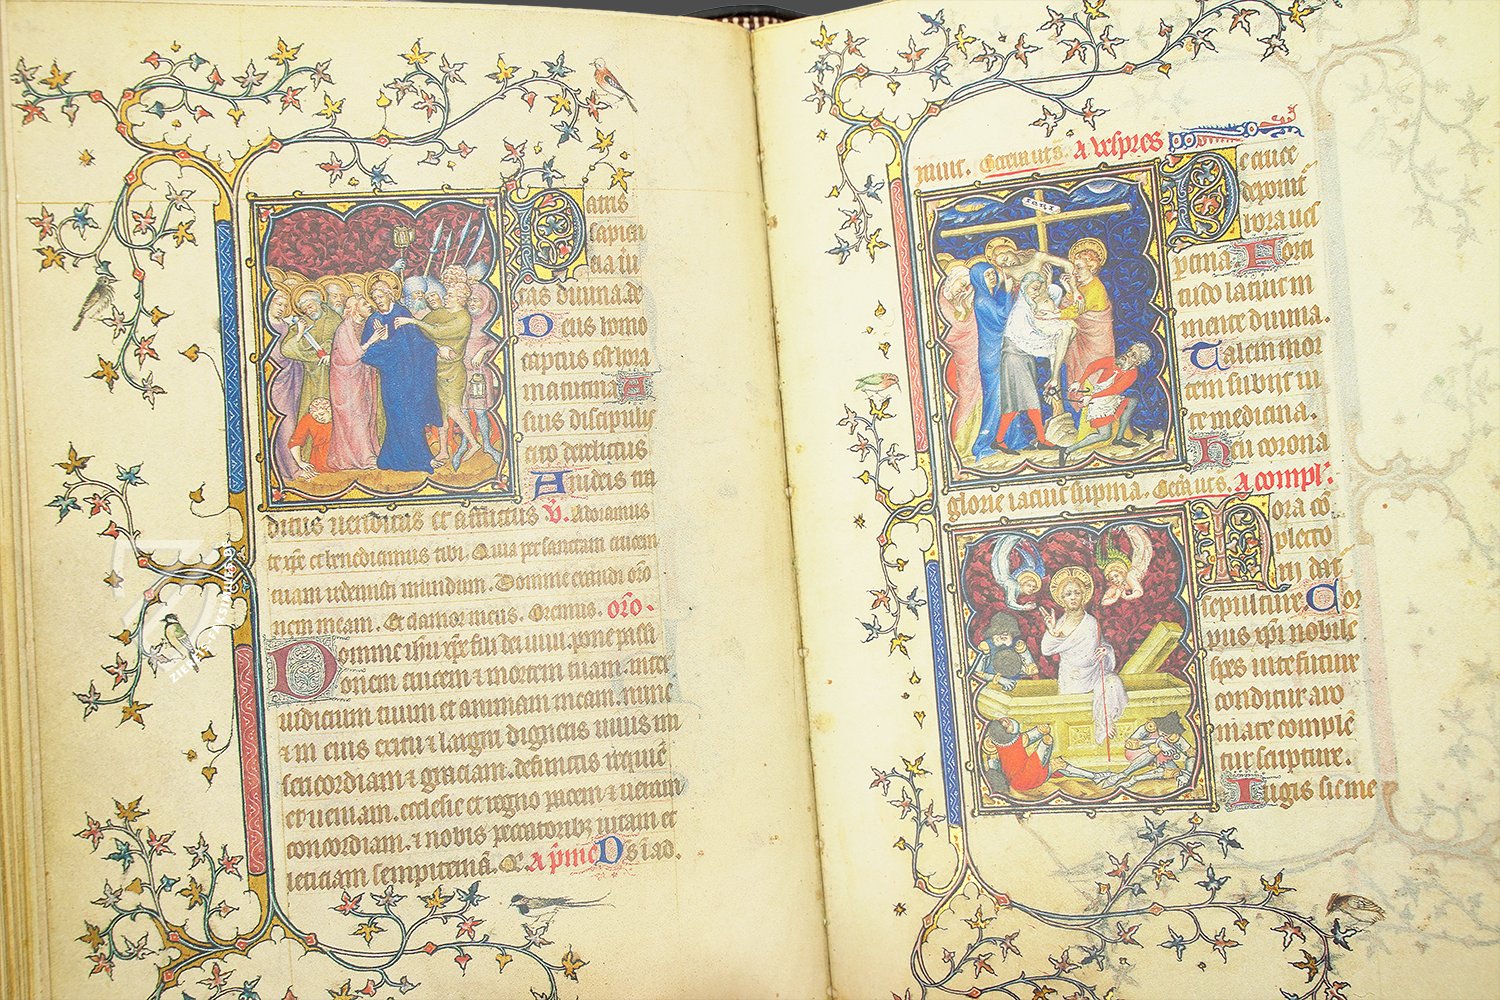 Patris
sapien
cia ũ
tas diuina. de
Deus homo
captus est hora
matutina A
suis discipulis
cito derelictus
A iudeis tra
ditus uenditus et afflictus ℣. Adoramus
te xp̃e et benedicimus tibi. Quia per sanctam crucem
tuam redemisti mundum. Domine exaudi orõ
nem meam. Et clamor meus. Oremus. orõ.
Domine ihũ xp̃e fili dei uiui. pone passi
onem crucem ⁊ mortem tuam. inter
iudicium tuum et animam meam. nunc
⁊ in eius exitu ⁊ largiri digneris uiuis mi
sericordiam ⁊ graciam. defunctis requiẽ
et ueniam. ecclesie et regno pacem ⁊ ueniam
concordiam. ⁊ nobis peccatoribꝫ uitam et
leticiam sempiternã. Q̃. A p̃me Ds i ad.
A vespres
De cruce
deponit̃
hora ues
pertina. Forti
tudo latuit in
mente diuina.
Talem mor
tem subijt ui
te medicina.
Heu corona
glorie iacuit supina. A compl'.
Hora cõ
pleto
rij dat̃
sepulture. Cor
pus xp̃i nobile
spes uite future
conditur aro
mate complẽ
tur scripture.
Iugis sit me